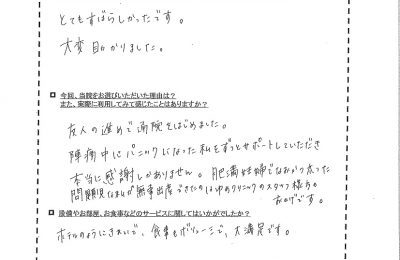 とてもすばらしかったです。
大変助かりました。
今回、当院をお選びいただいた理由は？
また、実際に利用してみて感じたことはありますか？
友人の進めで通院をはじめました。
陣痛中にパニックになった私をずっとサポートしていただき
本当に感謝しかありません。肥満妊婦でなおかつ太った
問題児な私が無事出産できたのはゆのクリニックのスタッフ様方の
おかげです。
設備やお部屋、お食事などのサービスに関してはいかがでしたか？
ホテルのようにきれいで、食事もボリューミーで、大満足です。